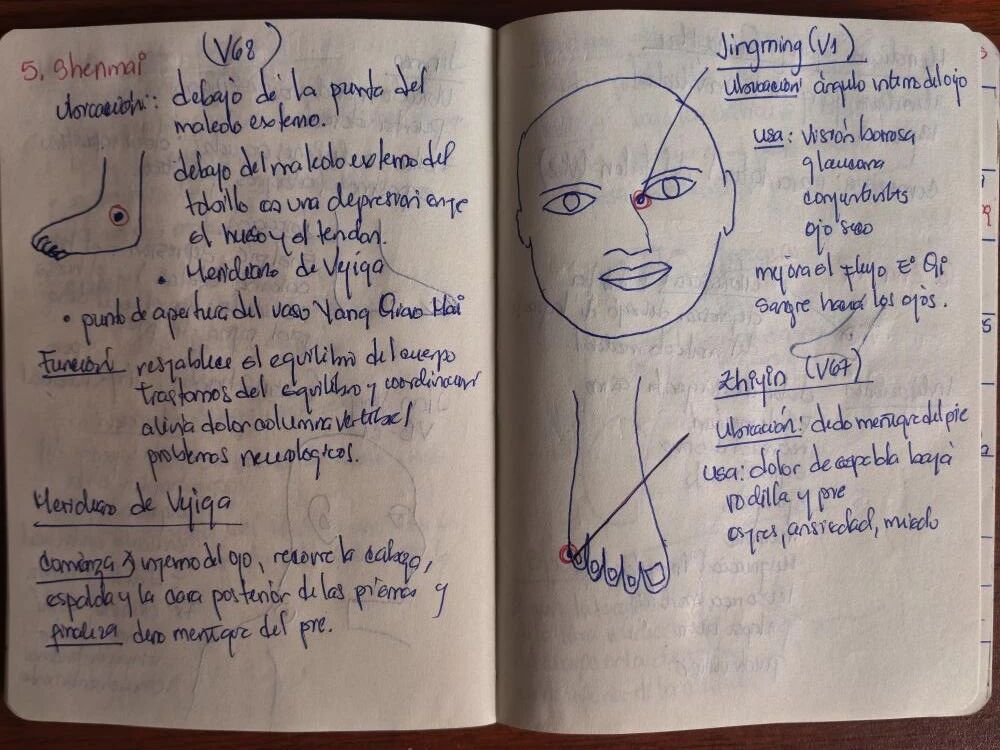 (V68)
5. Shenmai
Ubicación: debajo de la punta del
maleolo externo.
debajo del maleolo externo del
tobillo en una depresión entre
el hueso y el tendon.
• Meridiano de Vejiga
• punto de apertura del vaso Yang Qiao Mai
Función restablece el equilibrio del cuerpo
trastornos del equilibrio y coordinación
alivia dolor columna vertebral
problemas neurologicos.
Meridiano de Vejiga
Comienza interno del ojo, recorre la cabeza,
espalda y la cara posterior de las piernas y
finaliza dedo meñique del pie.
Jingming (V1)
Ubicación: ángulo interno del ojo
usa: visión borrosa
glaucoma
conjuntivitis
ojo seco
mejora el flujo E° Qi
sangre hacia los ojos.
Zhiyin (V67)
Ubicación: dedo meñique del pie
usa: dolor de espalda baja
rodilla y pie
estres, ansiedad, miedo